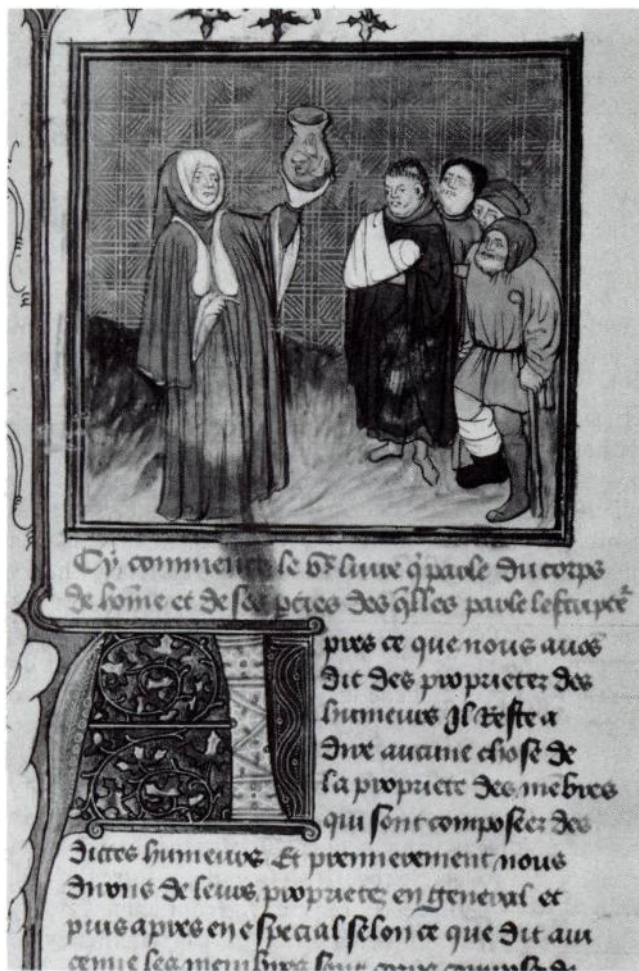 Cy commence le vᵉ livre q̄ parle du corps
de hōme et de ses pties des q̄lles parle lescripteᵉ
Apres ce que nous avōs
dit des proprietez des
humeurs Il reste a
dire aucune chose de
la propriete des mēbres
qui sont composez des
dictes humeurs Et premierement nous
dirons de leurs proprietez en general et
puis apres en especial selon ce que dit avi
cenne les membres sont corps